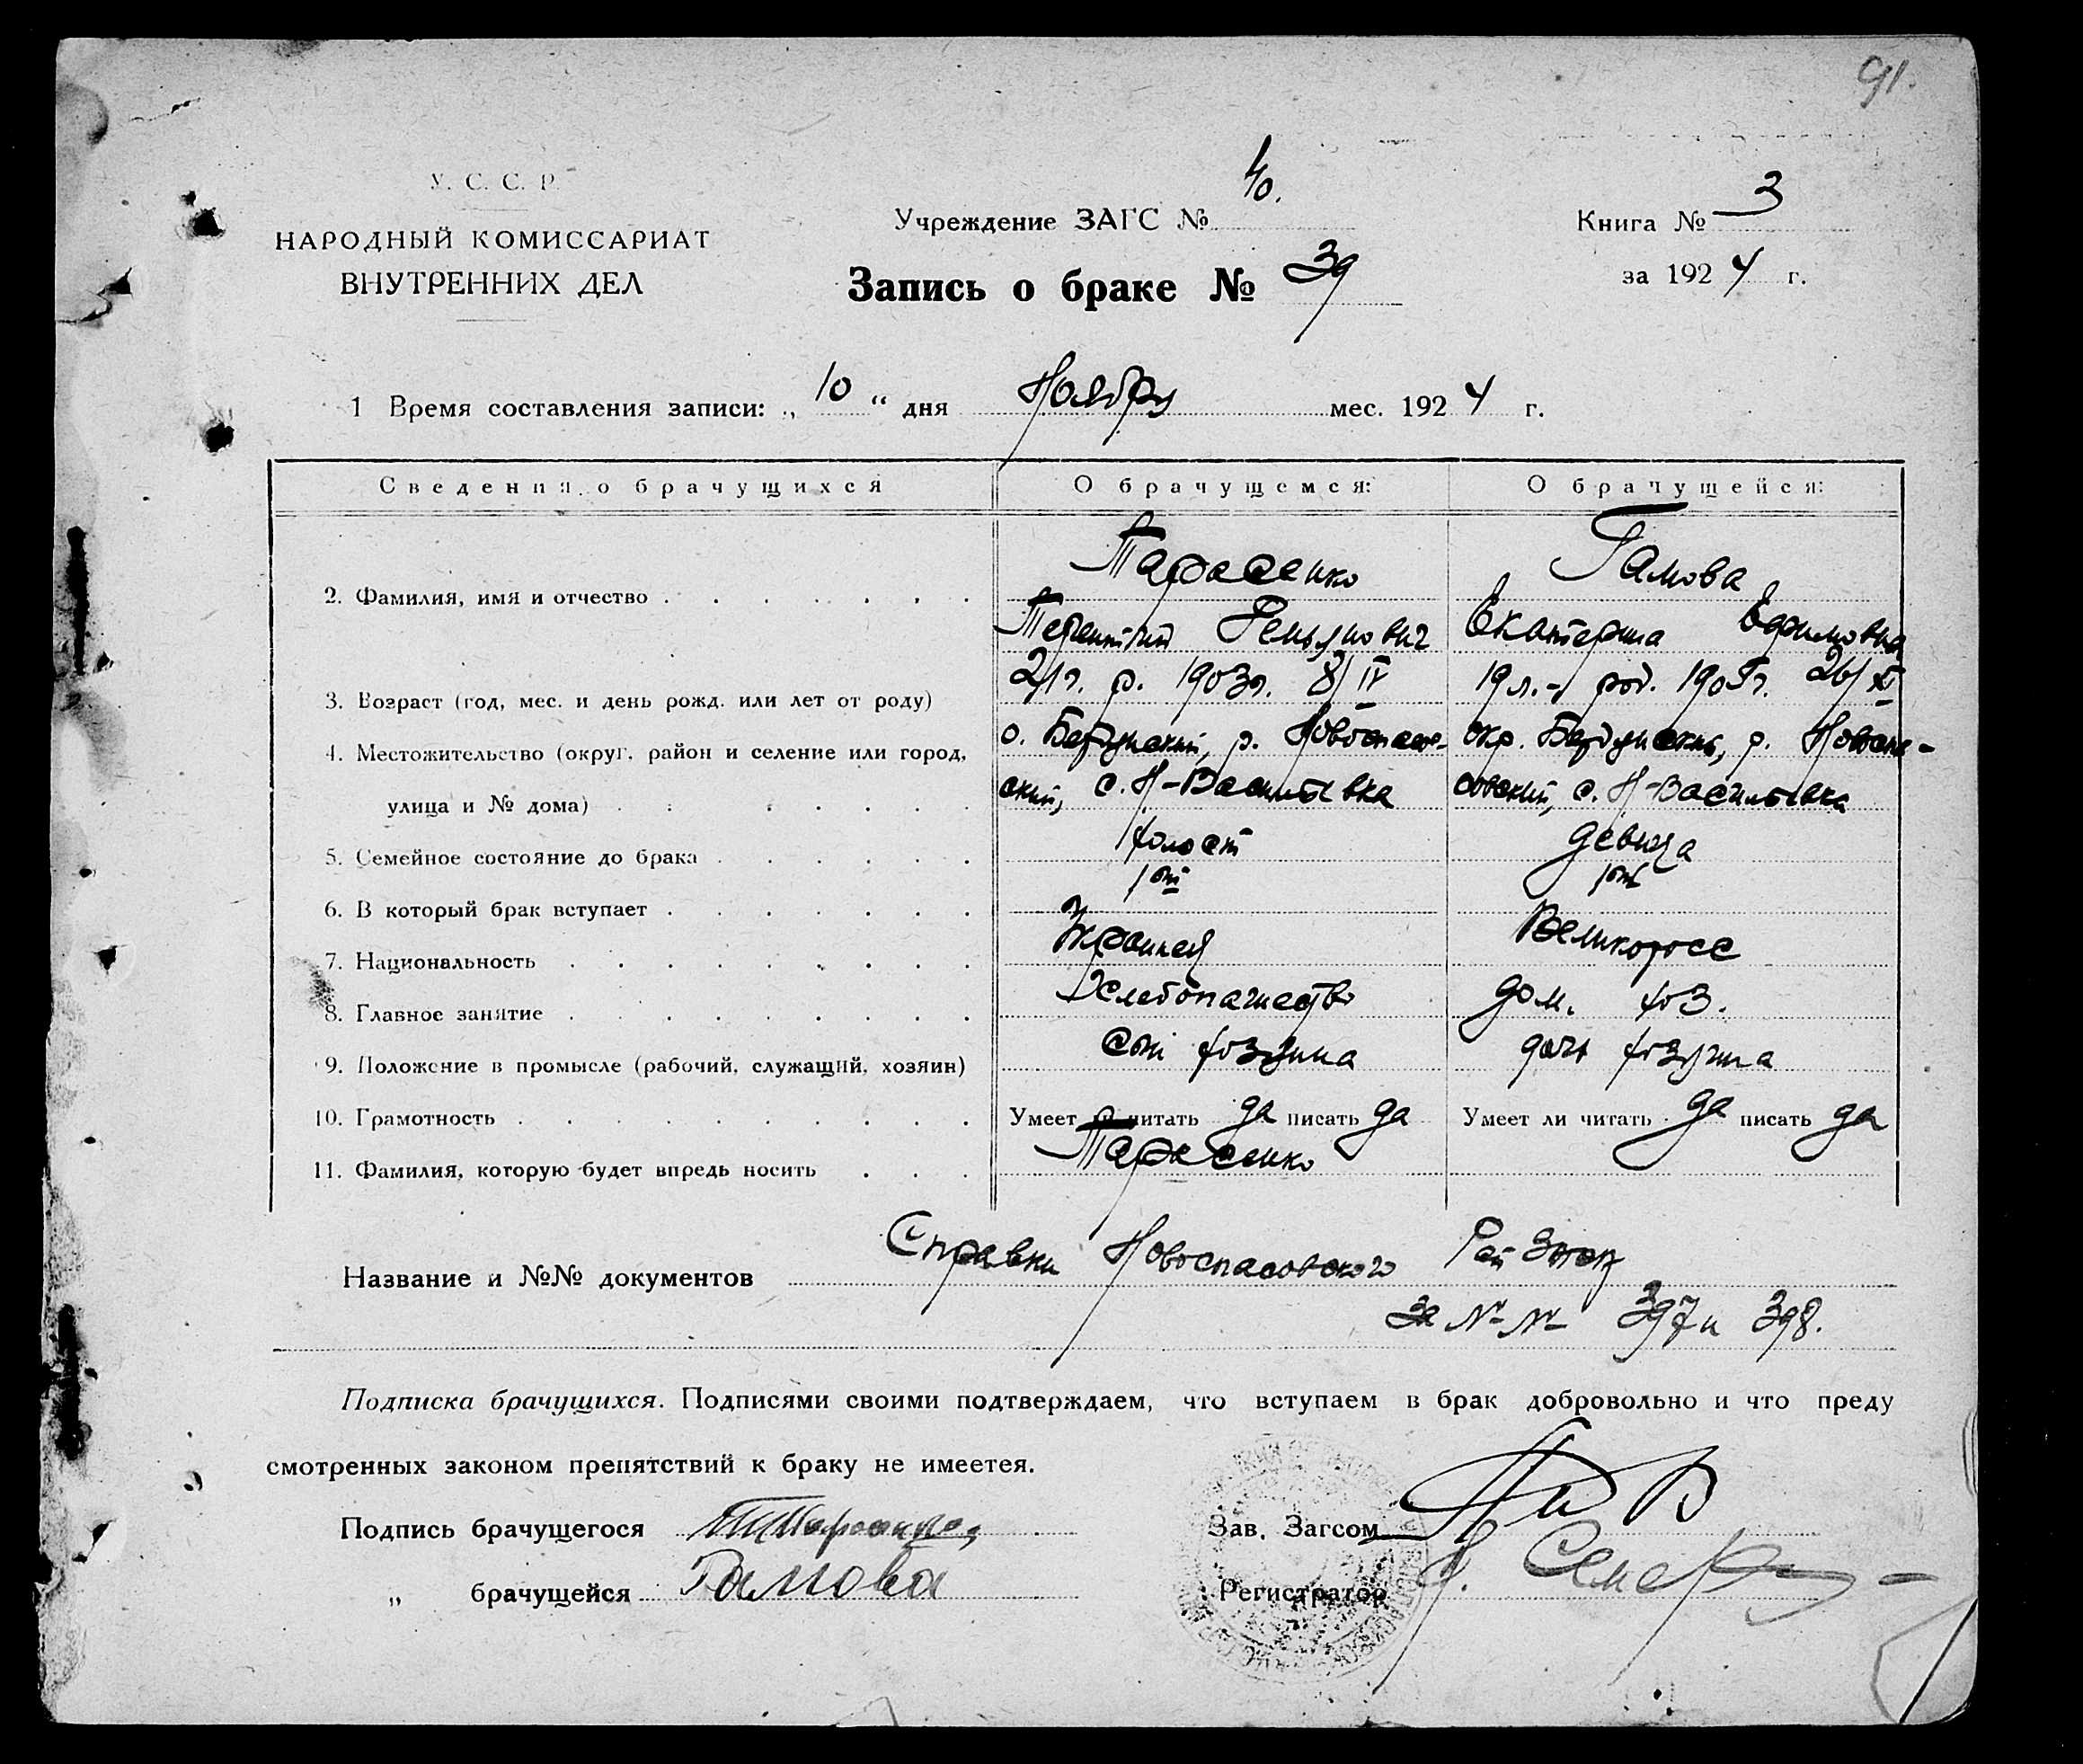 91.
У. С. С. Р.
НАРОДНЫЙ КОМИССАРИАТ
ВНУТРЕННИХ ДЕЛ
Учреждение ЗАГС № 40.
Запись о браке № 39
Книга № 3
за 1924 г.
1 Время составления записи: „10“ дня Ноября мес. 1924 г.
Сведения о брачущихся О брачущемся: О брачущейся:
Тарасенко Гамова
2. Фамилия, имя и отчество
Терентий Екатерина Ефимовна
21 г. р. 1903г. 8/IV 19 л. род. 1905г. 26/XI
3. Возраст (год, мес. и день рожд. или лет от роду)
о. Бердянский, р. Новоспасов- окр. Бердянский, р. Новоспа-
4. Местожительство (округ, район и селение или город,
ский, с. Н-Васильевка совский, с. Н-Васильевка
улица и № дома)
холост девица
5. Семейное состояние до брака
1ый 1ый
6. В который брак вступает
Украинец Великоросс
7. Национальность
Хлебопашество дом. хоз.
8. Главное занятие
сын хозяина дочь хозяина
9. Положение в промысле (рабочий, служащий, хозяин)
10. Грамотность Умеет ли читать да писать да Умеет ли читать да писать да
11. Фамилия, которую будет впредь носить Тарасенко
Название и №№ документов Справки Новоспасовского Рай
за №№ 397 и 398.
Подписка брачущихся. Подписями своими подтверждаем, что вступаем в брак добровольно и что преду
смотренных законом препятствий к браку не имеетея.
Подпись брачущегося Зав. Загсом
„ брачущейся Гамова Регистратор